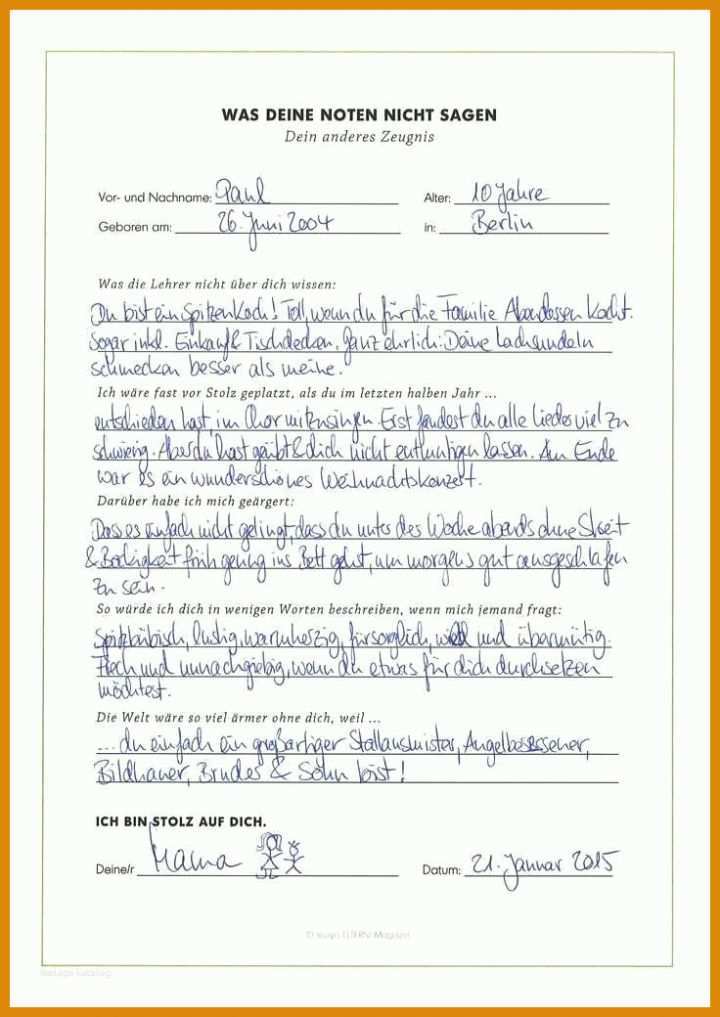 WAS DEINE NOTEN NICHT SAGEN
Dein anderes Zeugnis
Vor- und Nachname: Paul Alter: 10 Jahre
Geboren am: 26. Juni 2004 in: Berlin
Was die Lehrer nicht über dich wissen:
Du bist ein Spitzenkoch! Toll, wenn du für die Familie Abendessen kochst.
Sogar inkl. Einkauf & Tischdecken. Ganz ehrlich: Deine Lachsnudeln
schmecken besser als meine.
Ich wäre fast vor Stolz geplatzt, als du im letzten halben Jahr ...
entschieden hast, im Chor mitzusingen. Erst fandest du alle Lieder viel zu
schwierig. Aber du hast geübt & dich nicht entmutigen lassen. Am Ende
war es ein wunderschönes Weihnachtskonzert.
Darüber habe ich mich geärgert:
Dass es einfach nicht gelingt, dass du unter der Woche abends ohne Streit
& Bockigkeit früh genug ins Bett gehst, um morgens gut ausgeschlafen
zu sein.
So würde ich dich in wenigen Worten beschreiben, wenn mich jemand fragt:
Spitzbübisch, lustig, warmherzig, fürsorglich, wild und übermütig.
Frech und unnachgiebig, wenn du etwas für dich durchsetzen
möchtest.
Die Welt wäre so viel ärmer ohne dich, weil ...
... du einfach ein großartiger Stallausmister, Angelbesessener,
Bildhauer, Bruder & Sohn bist!
ICH BIN STOLZ AUF DICH.
Deine/r Mama Datum: 21. Januar 2015
ELTERN Magazin